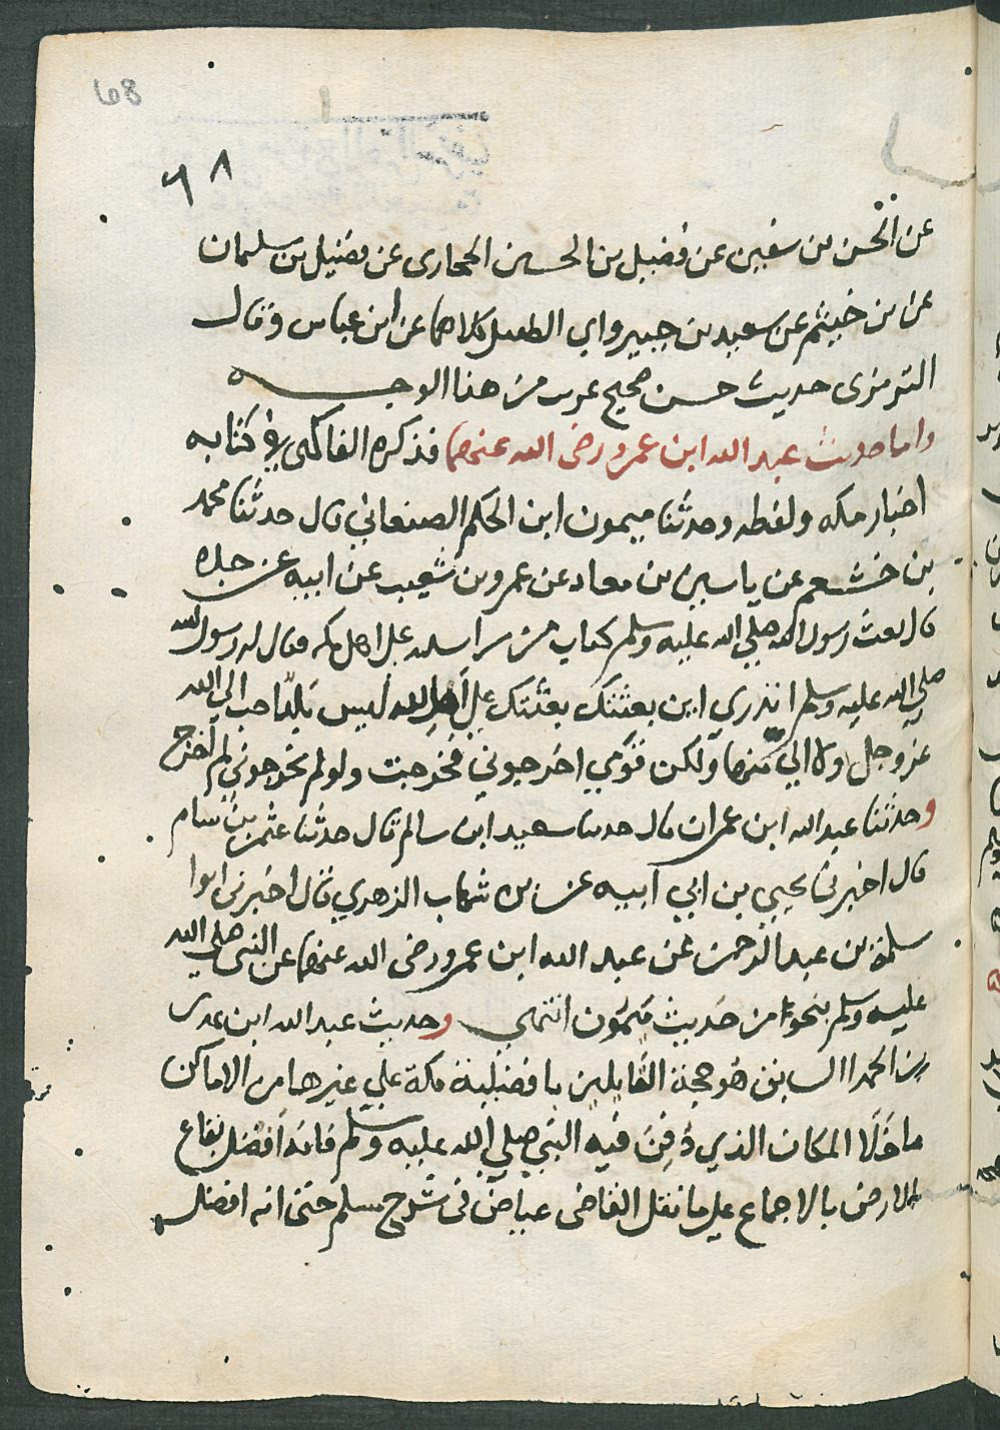 68
٦٨
عن الحسن بن سفين عن فضيل بن الحسين الجحدارى عن فضيل بن سليمان
عن بن خيثم عن سعيد بن جبير وابي الطفيل كلاهما عن ابن عباس وقال
الترمزى حديث حسن صحيح غريب من هذا الوجه
واما حديث عبد الله ابن عمرو رضى الله عنهما فذكره الفاكهى في كتابه
اخبار مكه ولفظه وحدثنا ميمون ابن الحكم الصنعاني قال حدثنا محمد
بن خشعم عن ياسين بن معاد عن عمرو بن شعيب عن ابيه عن جده
قال بعث رسول الله صلي الله عليه وسلم كتاب من اسلم على اهل مكه فقال له رسول الله
صلي الله عليه وسلم اتدري اين بعثتك بعثتك علي اهل الله ليس بلدا احب الي الله
عز وجل ولا الي منها ولكن قومي اخرجوني فخرجت ولو لم يخرجوني لم اخرج
وحدثنا عبد الله ابن عمران قال حدثنا سعيد ابن سالم قال حدثنا عثمن بن سام
قال اخبرني يحيي بن ابي ابيه عن بن شهاب الزهري قال اخبرنى ابوا
سلمة بن عبد الرحمن عن عبد الله ابن عمرو رضى الله عنهما عن النبى صلي الله
عليه وسلم بنحوا من حديث ميمون انتهى وحديث عبد الله ابن عدى
بن الحمرا السابق هو حجة القايلين بافضيلية مكة علي غيرها من الاماكن
ما خلا المكان الذي دفن فيه النبي صلي الله عليه وسلم فانه افضل بقاع
الارض بالاجماع على ما نقل القاضى عياض فى شرح مسلم حتى انه افضل